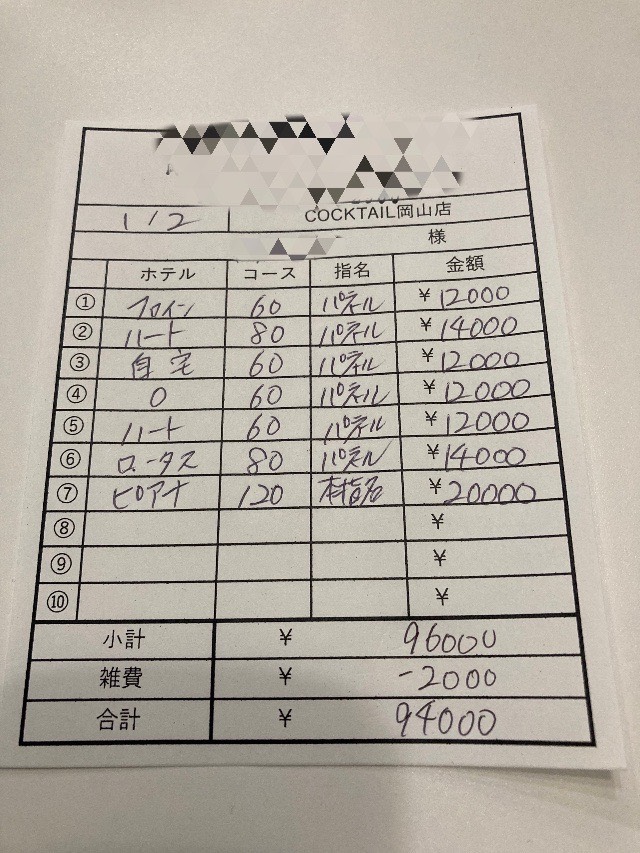 1/2 COCKTAIL岡山店
様
ホテル コース 指名 金額
① フロイン 60 パネル ¥12000
② ハート 80 パネル ¥14000
③ 自宅 60 パネル ¥12000
④ O 60 パネル ¥12000
⑤ ハート 60 パネル ¥12000
⑥ ロータス 80 パネル ¥14000
⑦ ピアナ 120 本指名 ¥20000
⑧ ¥
⑨ ¥
⑩ ¥
小計 ¥ 96000
雑費 ¥ -2000
合計 ¥ 94000